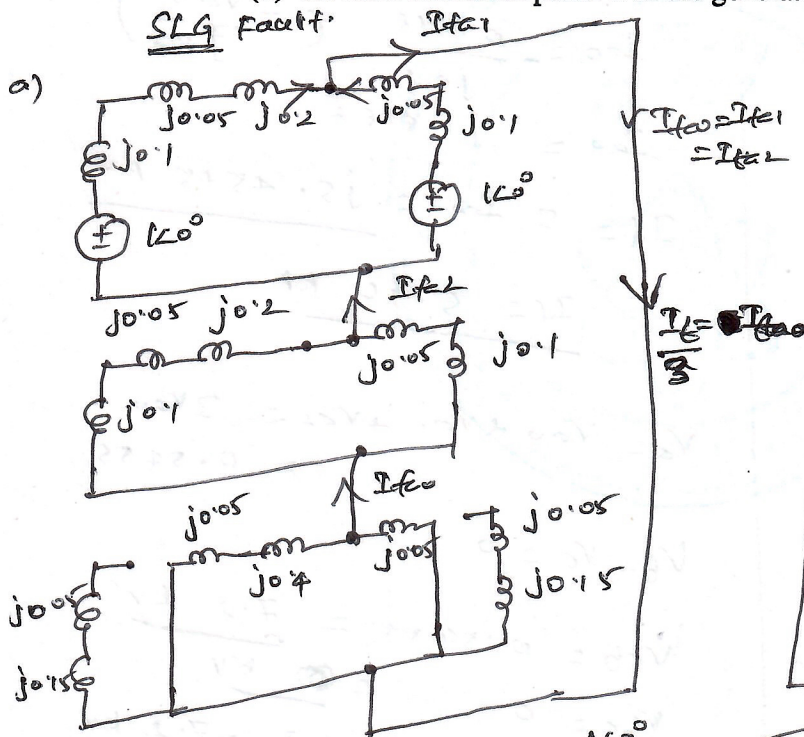 SLG Fault.
Ifa1
a)
j0.05 j0.2
j0.05
j0.1
j0.1
Ifa0 = Ifa1
= Ifa2
1∠0°
1∠0°
Ifa2
j0.05 j0.2
j0.05
j0.1
If/3 = Ifa0
j0.1
Ifa0
j0.05
j0.05
j0.05
j0.4
j0.05
j0.15
j0.15